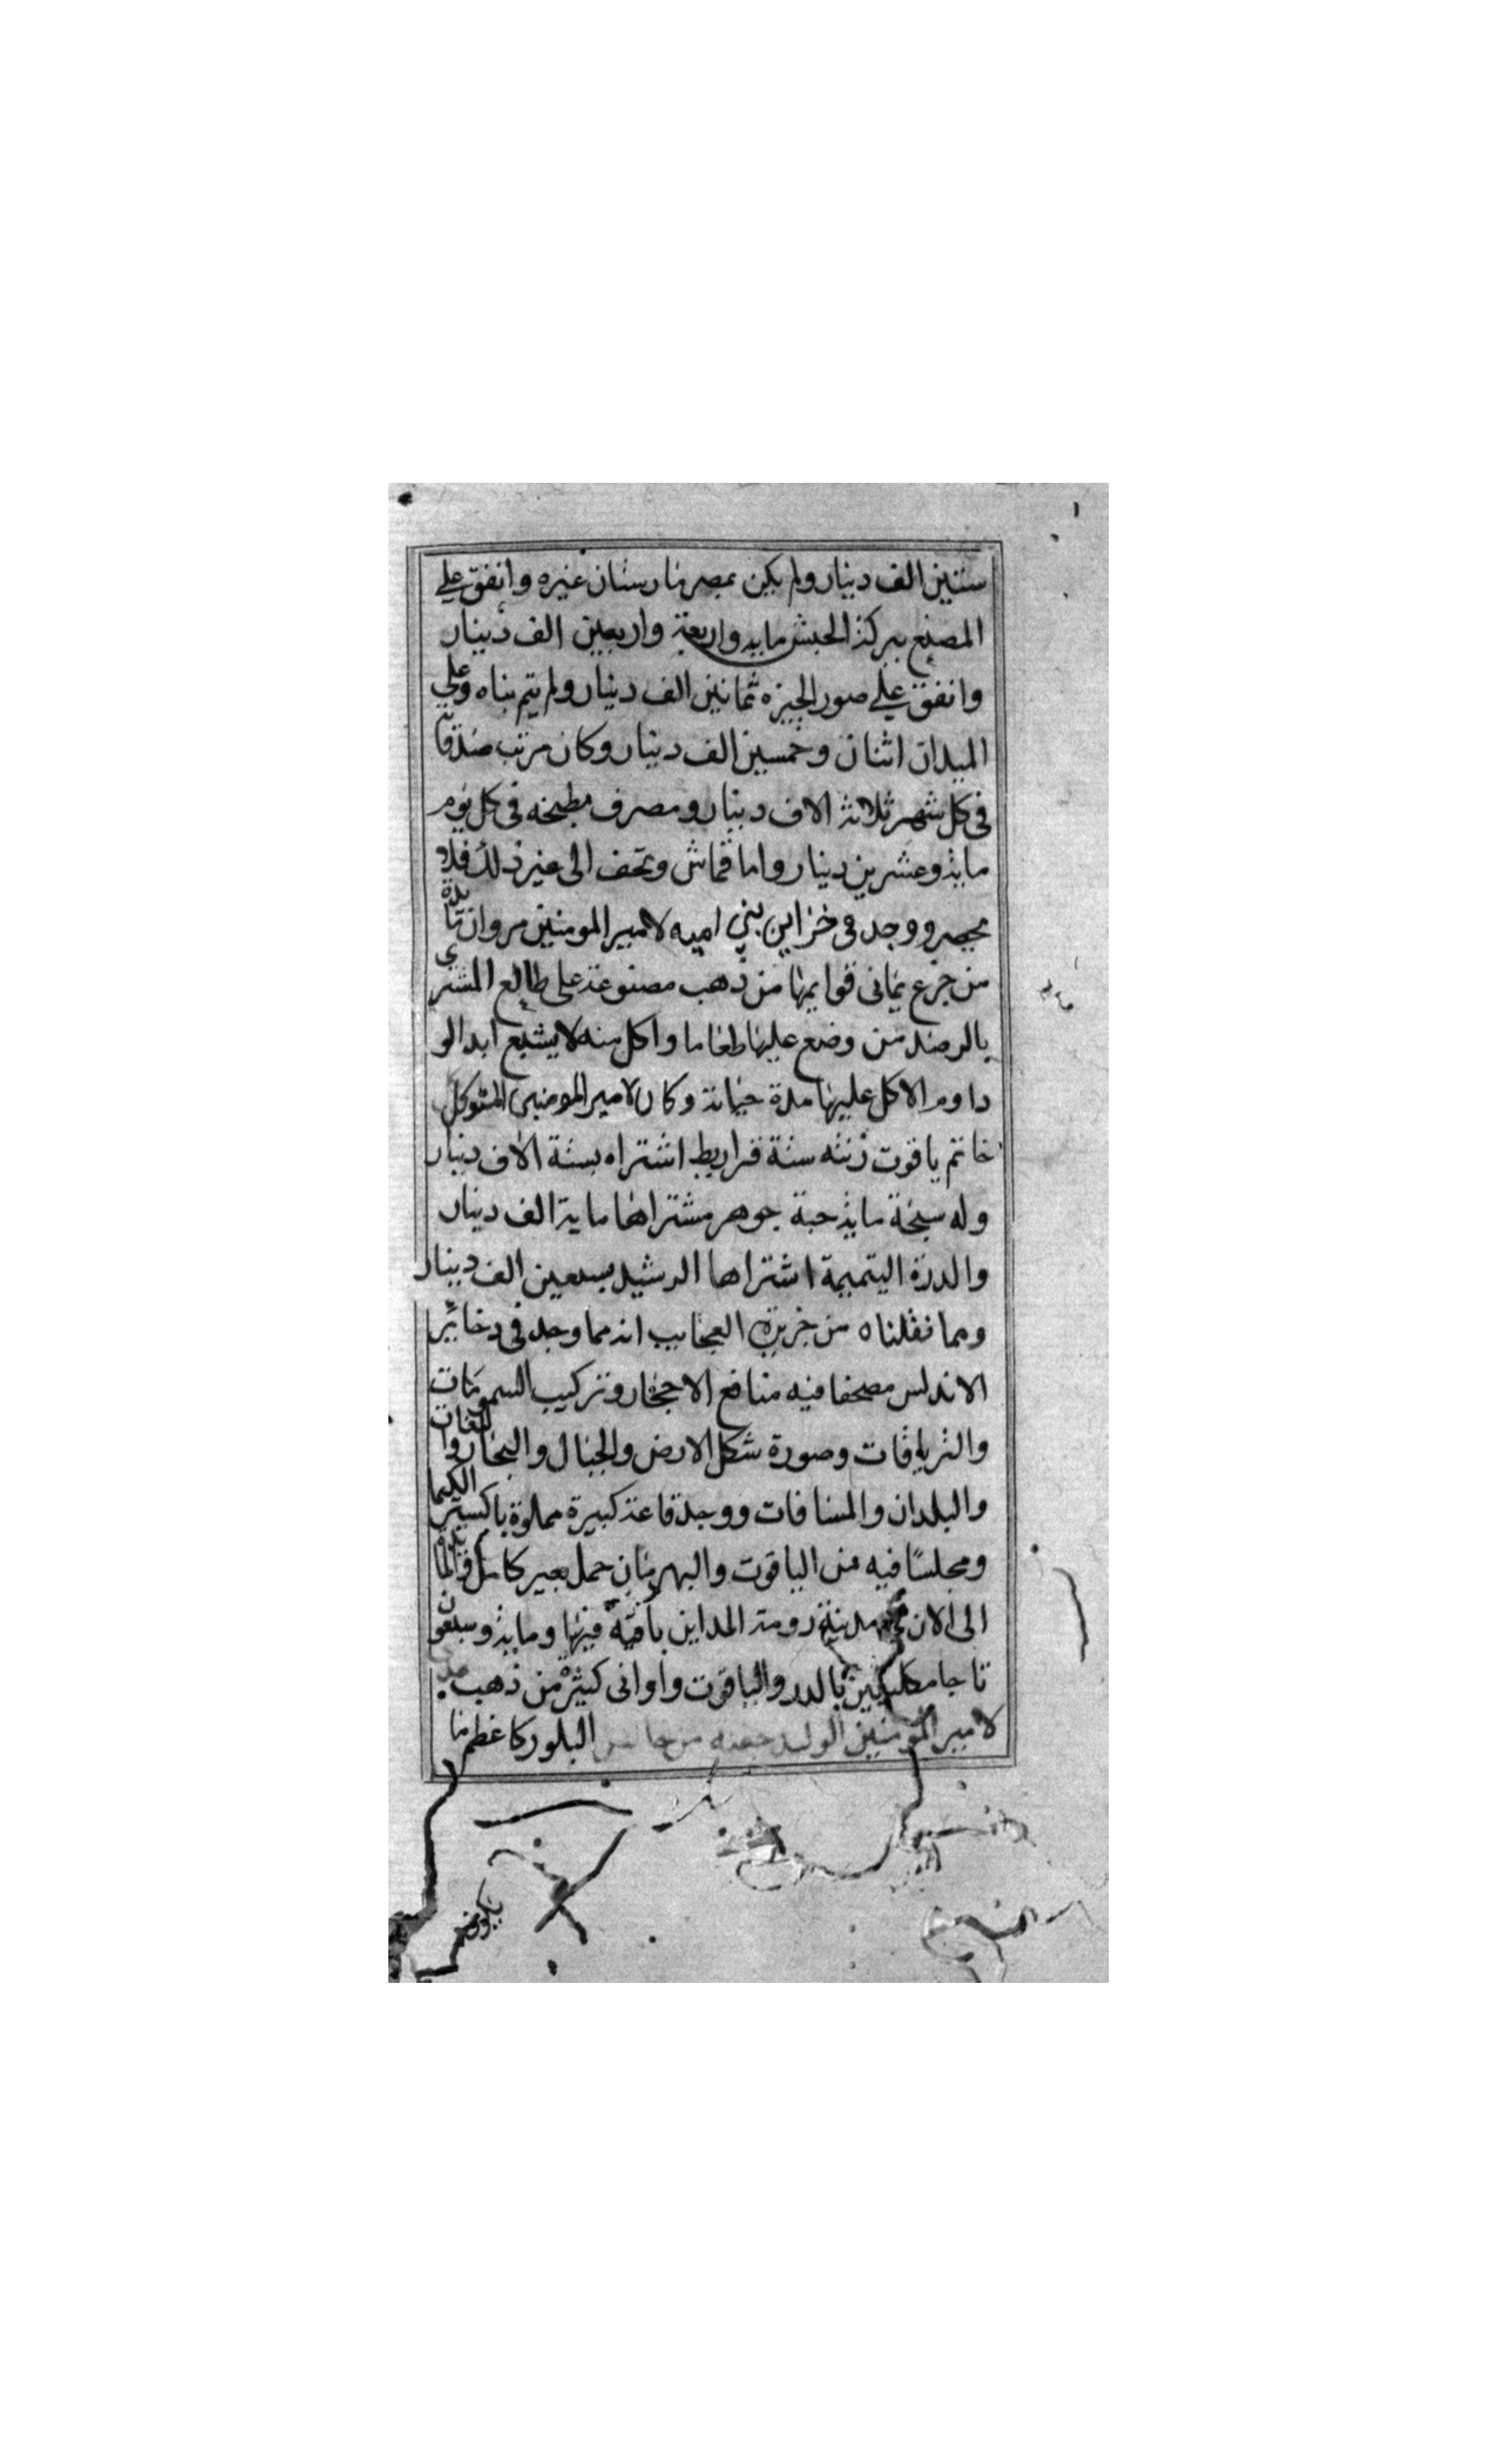 ستين الف دينار ولم يكن بمصر مارستان غيره وانفق علي
المصنع ببركة الحبش مايه واربعة واربعين الف دينار
وانفق علي صور الجيزه ثمانين الف دينار ولم يتم بناه وعلي
الميدان اثنان وخمسين الف دينار وكان مرتب صدقاته
في كل شهر ثلاثة الاف دينار ومصرف مطبخه في كل يوم
ماية وعشرين دينار واما قماش وتحف الى غير ذلك فلا
يحصر ووجد في خزاين بني اميه لامير المومنين مروان مايدة
من جزع يماني قوايمها من ذهب مصنوعة على طالع المشتري
بالرصد من وضع عليها طعاما واكل منه لا يشبع ابدا لو
داوم الاكل عليها مدة حياته وكان لامير المومنين المتوكل
خاتم ياقوت زنته ستة قراريط اشتراه بستة الاف دينار
وله سبحة ماية حبة جوهر مشتراها ماية الف دينار
والدرة اليتيمة اشتراها الرشيد بسبعين الف دينار
ومما نقلناه من خريدة العجايب انه مما وجد في دخاير
الاندلس مصحفا فيه منافع الاحجار وتركيب السمومات
والترياقات وصورة شكل الارض والجبال والبحار واللغات
والبلدان والمسافات ووجد قاعة كبيرة مملوة باكسير الكيما
ومجلسا فيه من الياقوت والبهرمان حمل بعير كامل والمايدة
الى الان في مدينة رومة المداين باقية فيها وماية وسبعون
تاجا مكللين بالدر والياقوت واواني كثيرة من ذهب
لامير المومنين الوليد من البلور كاعظم ما
يكون